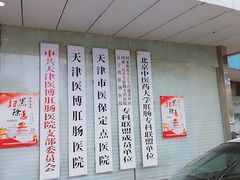 中共天津医博肛肠医院支部委员会
天津医博肛肠医院
天津市医保定点医院
专科联盟成员单位
北京中医药大学肛肠专科联盟单位
扫黑
除恶